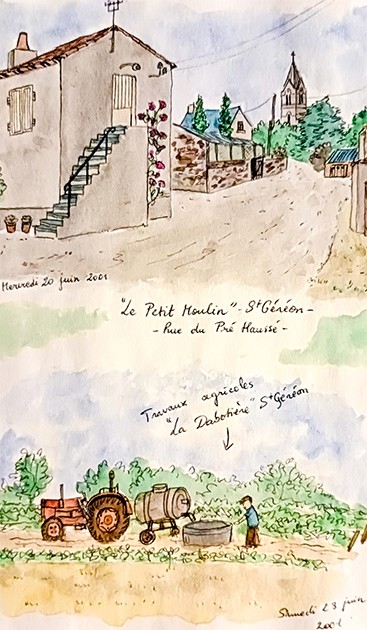 Mercredi 20 juin 2001
"Le Petit Moulin" - St Géréon -
- Rue du Pré Haussé -
Travaux agricoles
"La Dabotière" St Géréon
Samedi 23 juin
2001